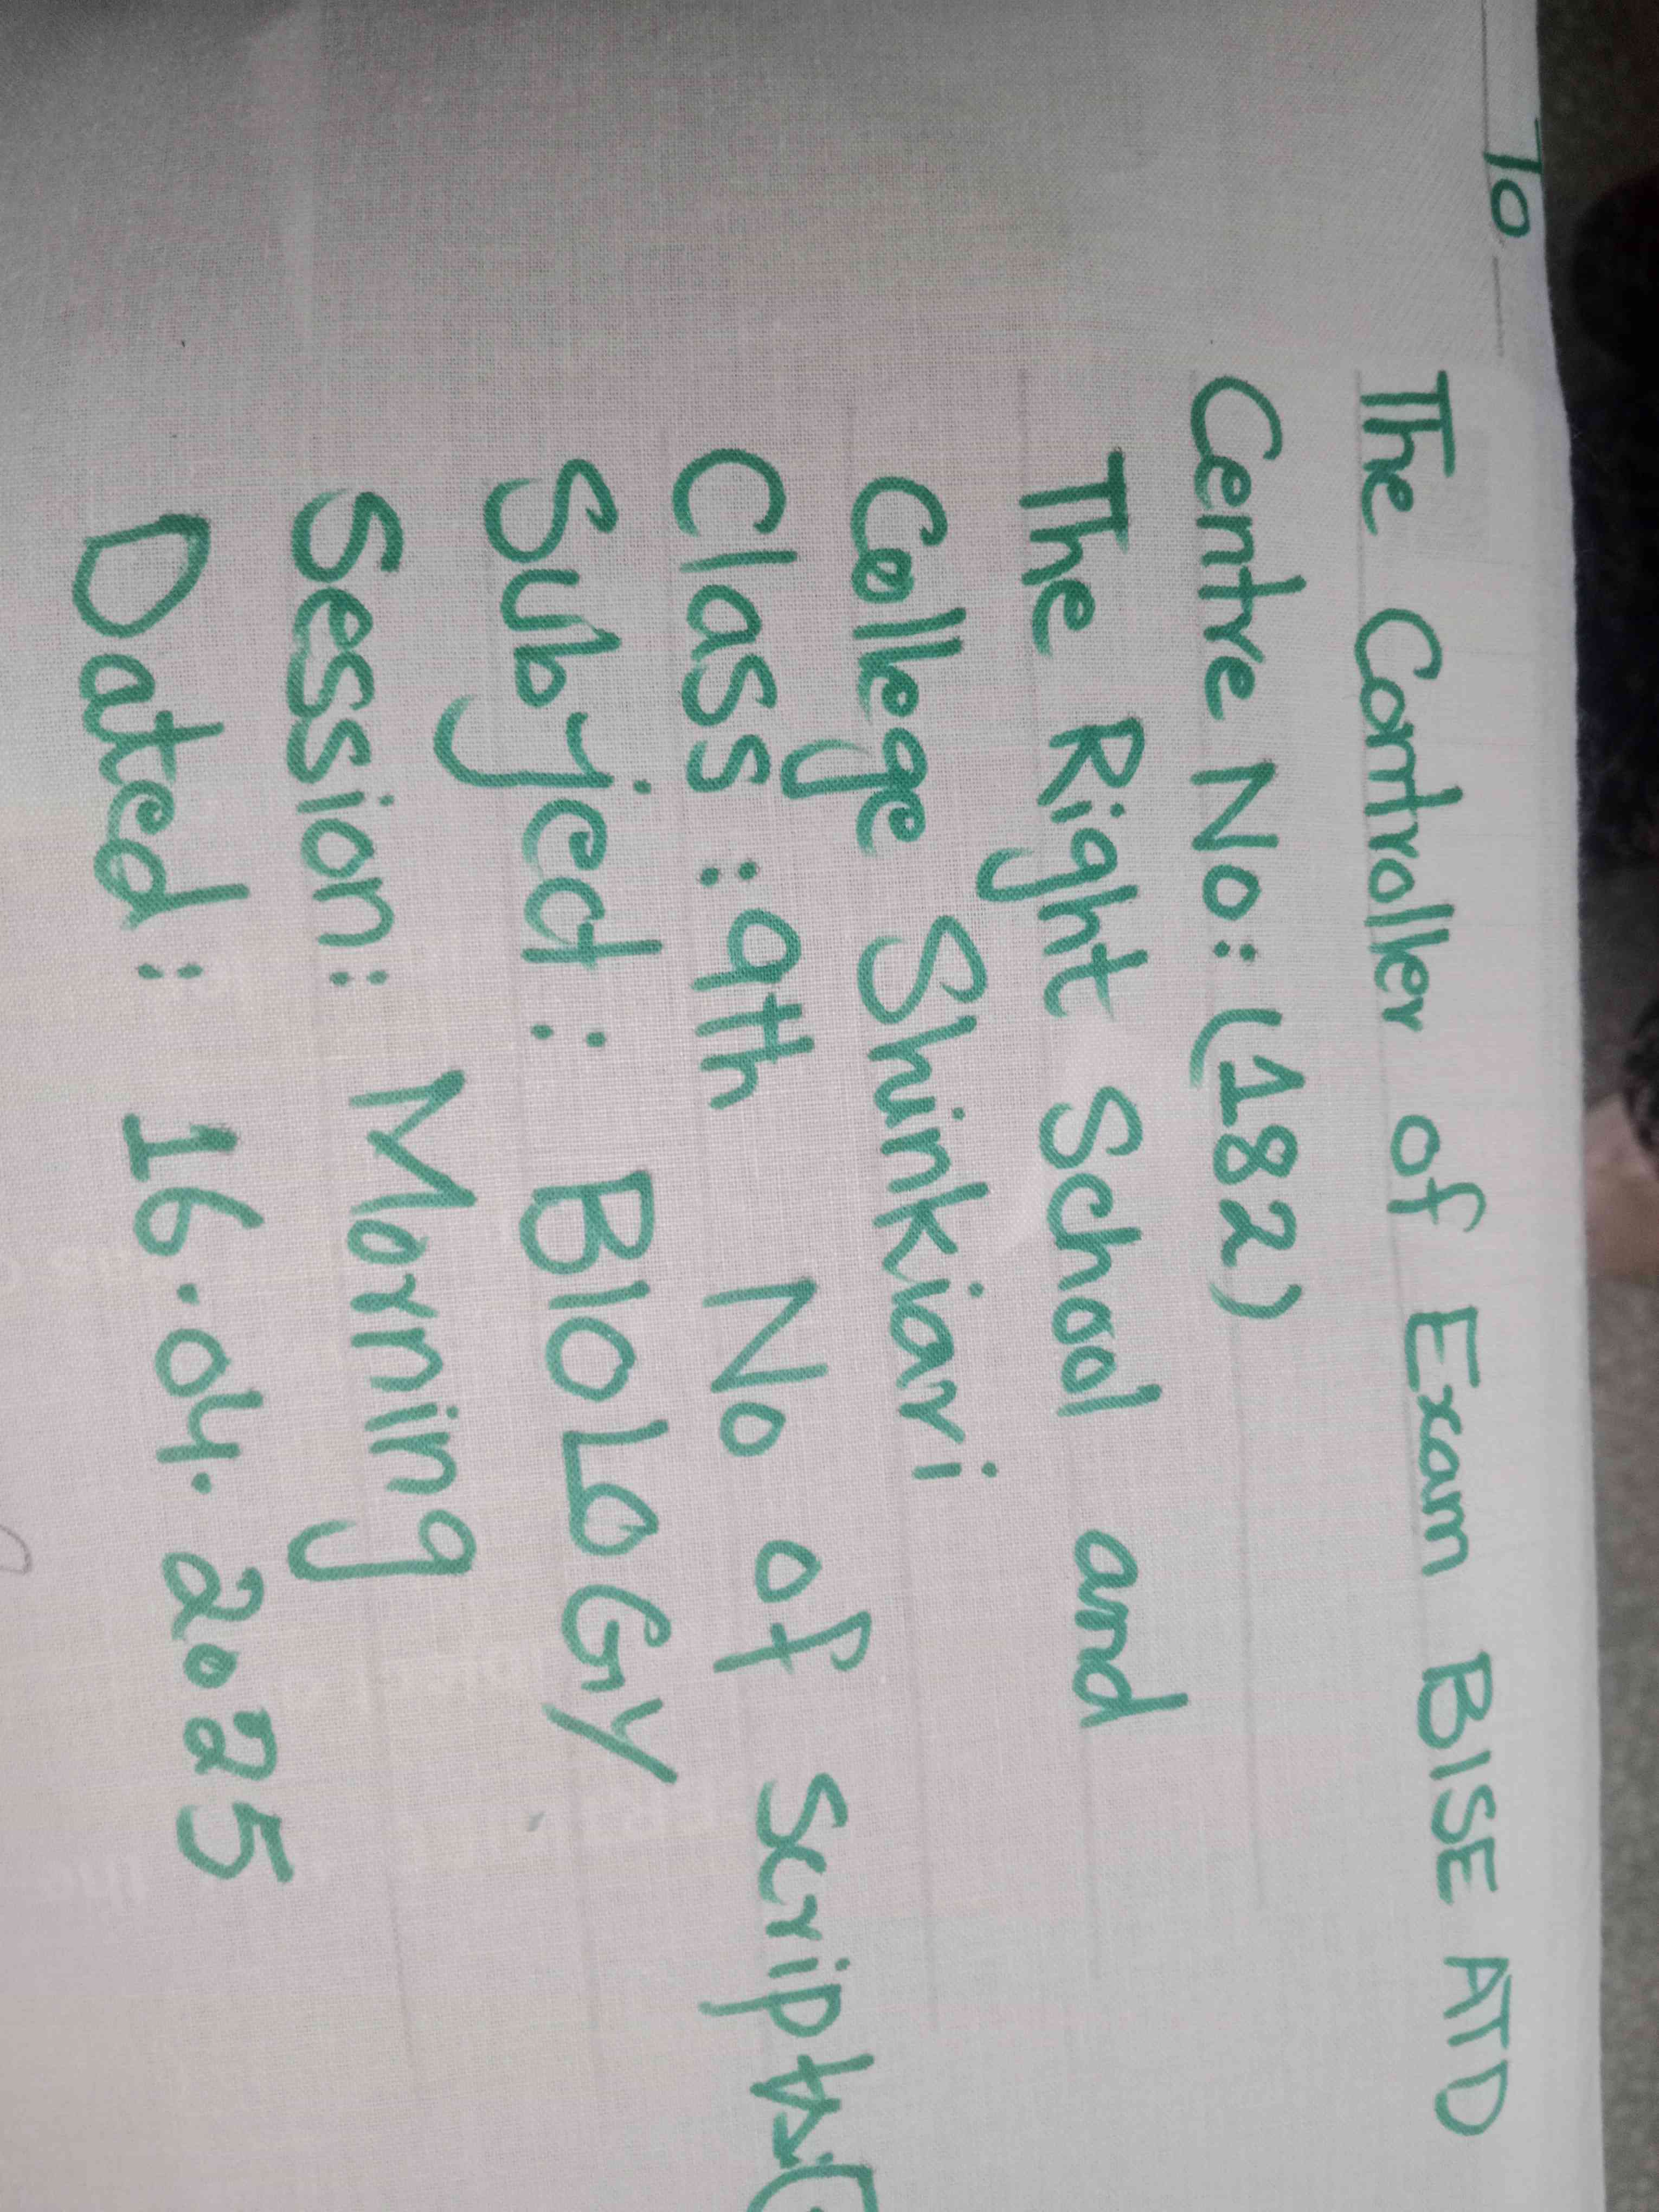 To
The Controller of Exam BISE ATD
Centre No: (182)
The Right School and
College Shinkiari
Class : 9th No of Scripts:
Subject : BIOLOGY
Session: Morning
Dated : 16.04.2025